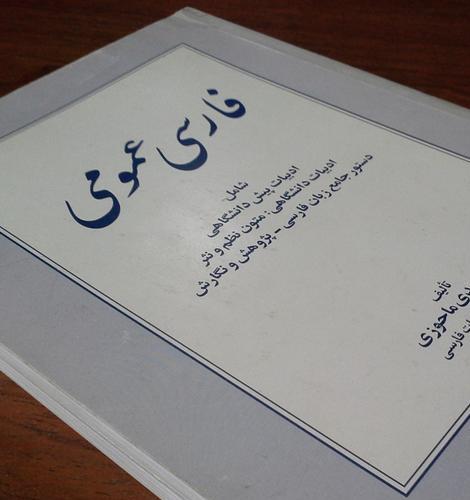 فارسی عمومی
شامل
ادبیات پیش دانشگاهی
ادبیات دانشگاهی: متون نظم و نثر
دستور جامع زبان فارسی - پژوهش و نگارش
تألیف
ماحوزی
فارسی